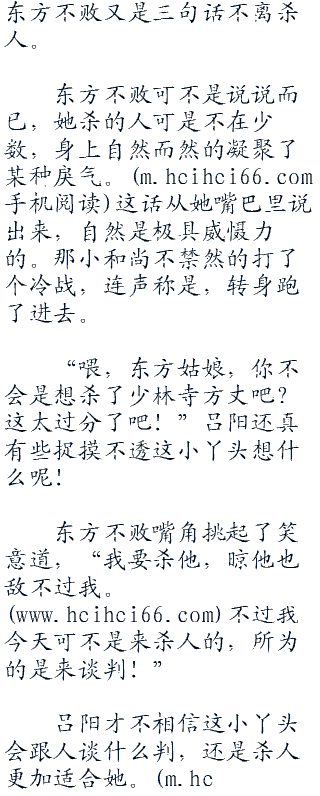 东方不败又是三句话不离杀
人。
东方不败可不是说说而
已，她杀的人可是不在少
数，身上自然而然的凝聚了
某种戾气。(m.hcihci66.com
手机阅读)这话从她嘴巴里说
出来，自然是极具威慑力
的。那小和尚不禁然的打了
个冷战，连声称是，转身跑
了进去。
“喂，东方姑娘，你不
会是想杀了少林寺方丈吧？
这太过分了吧！”吕阳还真
有些捉摸不透这小丫头想什
么呢！
东方不败嘴角挑起了笑
意道，“我要杀他，晾他也
敌不过我。
(www.hcihci66.com)不过我
今天可不是来杀人的，所为
的是来谈判！”
吕阳才不相信这小丫头
会跟人谈什么判，还是杀人
更加适合她。(m.hc